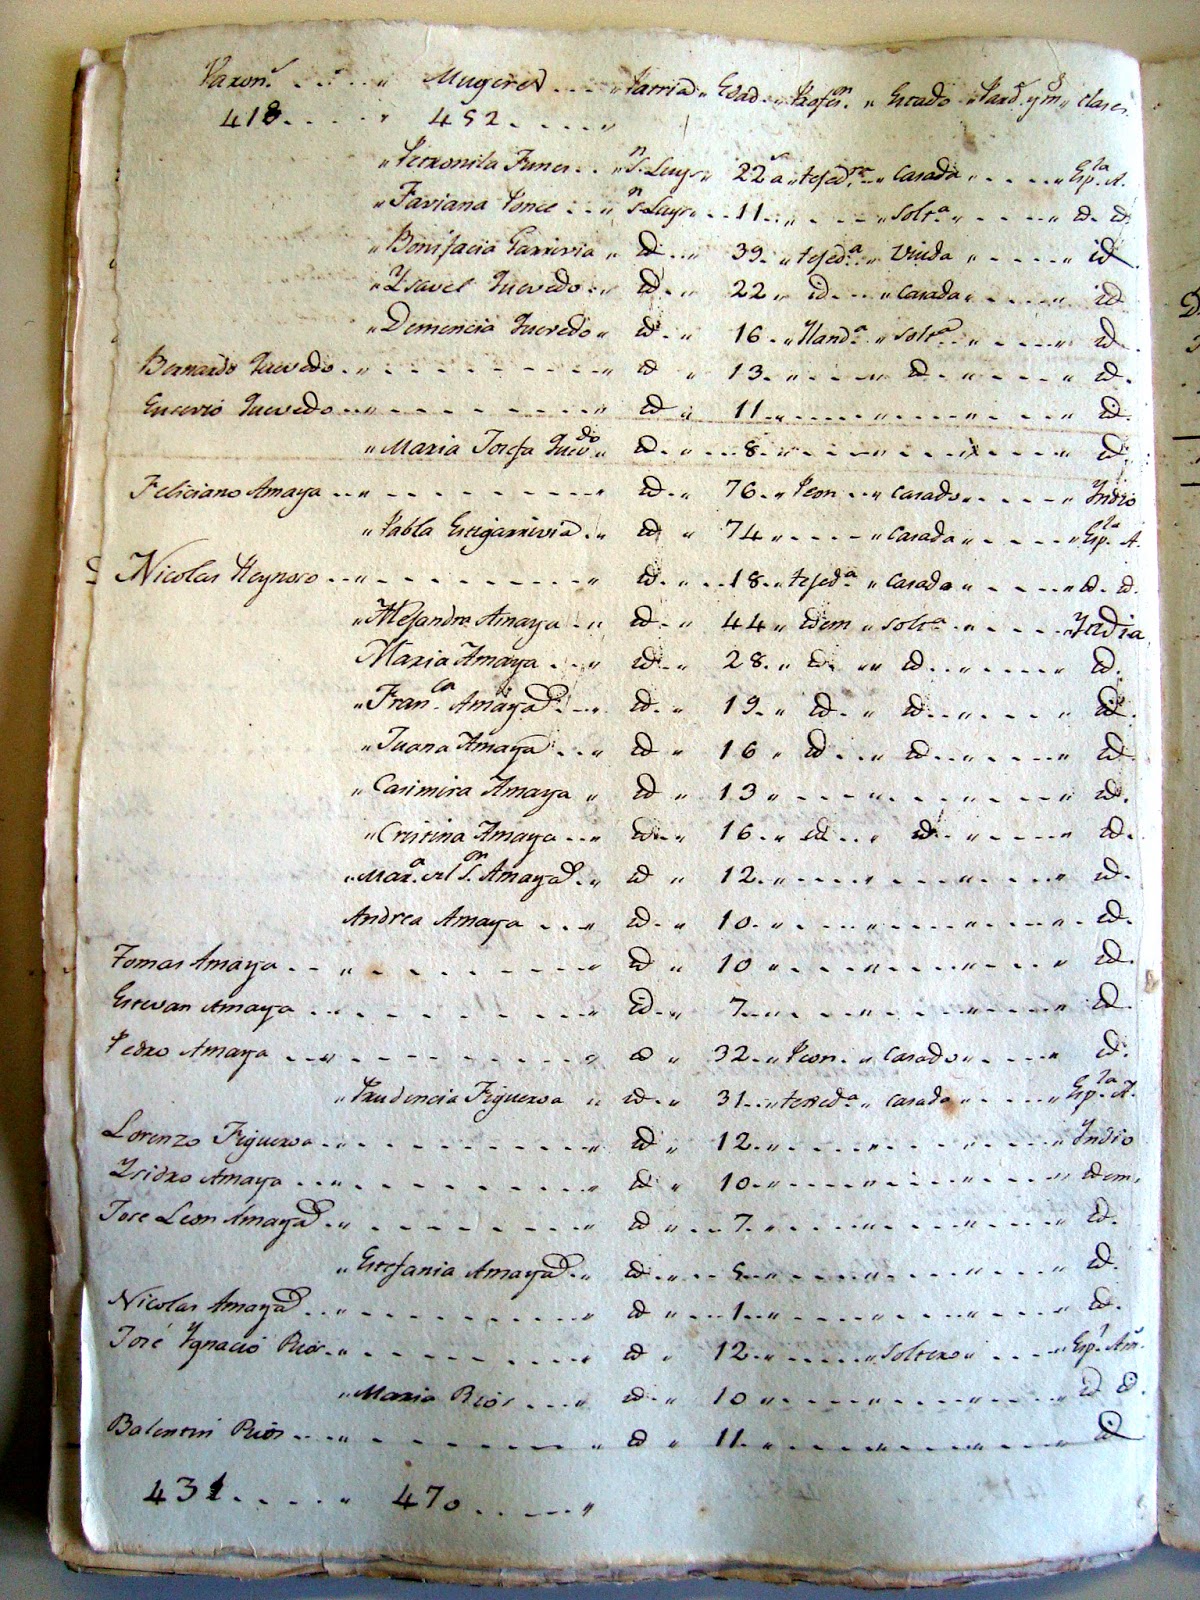 Varon.s Mugeres Patria Edad Profes.n Estado Pard.s y m.s clases
418 452
Petronila Funes S.n Luys 22 a.s tejed.ra casada Esp.la A.
Faviana Ponce S.n Luys 11 solt.a id. id.
Bonifacia Garrivia id. 39 tejed.a Viuda id.
Ysavel Quevedo id. 22 id. casada id.
Demencia Quevedo id. 16 Yland.a solt.a id.
Bernardo Quevedo id. 13 id. id.
Eusevio Quevedo id. 11 id.
Maria Josefa Quev.do id. 8 id.
Feliciano Amaya id. 76 Peon casado Yndio
Pabla Estigarrivia id. 74 casada Esp.la A.
Nicolas Reynoso id. 18 tejed.a casada id. id.
Alejandra Amaya id. 44 idem solt.a Yndia
Maria Amaya id. 28 id. id. id.
Fran.ca Amaya id. 19 id. id. id.
Juana Amaya id. 16 id. id. id.
Casimira Amaya id. 13 id.
Cristina Amaya id. 16 id. id. id.
Mar.a del Amaya id. 12 id.
Andrea Amaya id. 10 id.
Tomas Amaya id. 10 id.
Estevan Amaya id. 7 id.
Pedro Amaya id. 32 Peon casado id.
Prudencia Figueroa id. 31 texed.a casada Esp.la A.
Lorenzo Figueroa id. 12 Yndio
Ysidro Amaya id. 10 idem
Jose Leon Amaya id. 7 id.
Estefania Amaya id. 5 id.
Nicolas Amaya id. 1 id.
José Ygnacio Rios id. 12 Soltero Esp.l Am.
Maria Rios id. 10 id. id.
Balentin Rios id. 11 id.
431 470